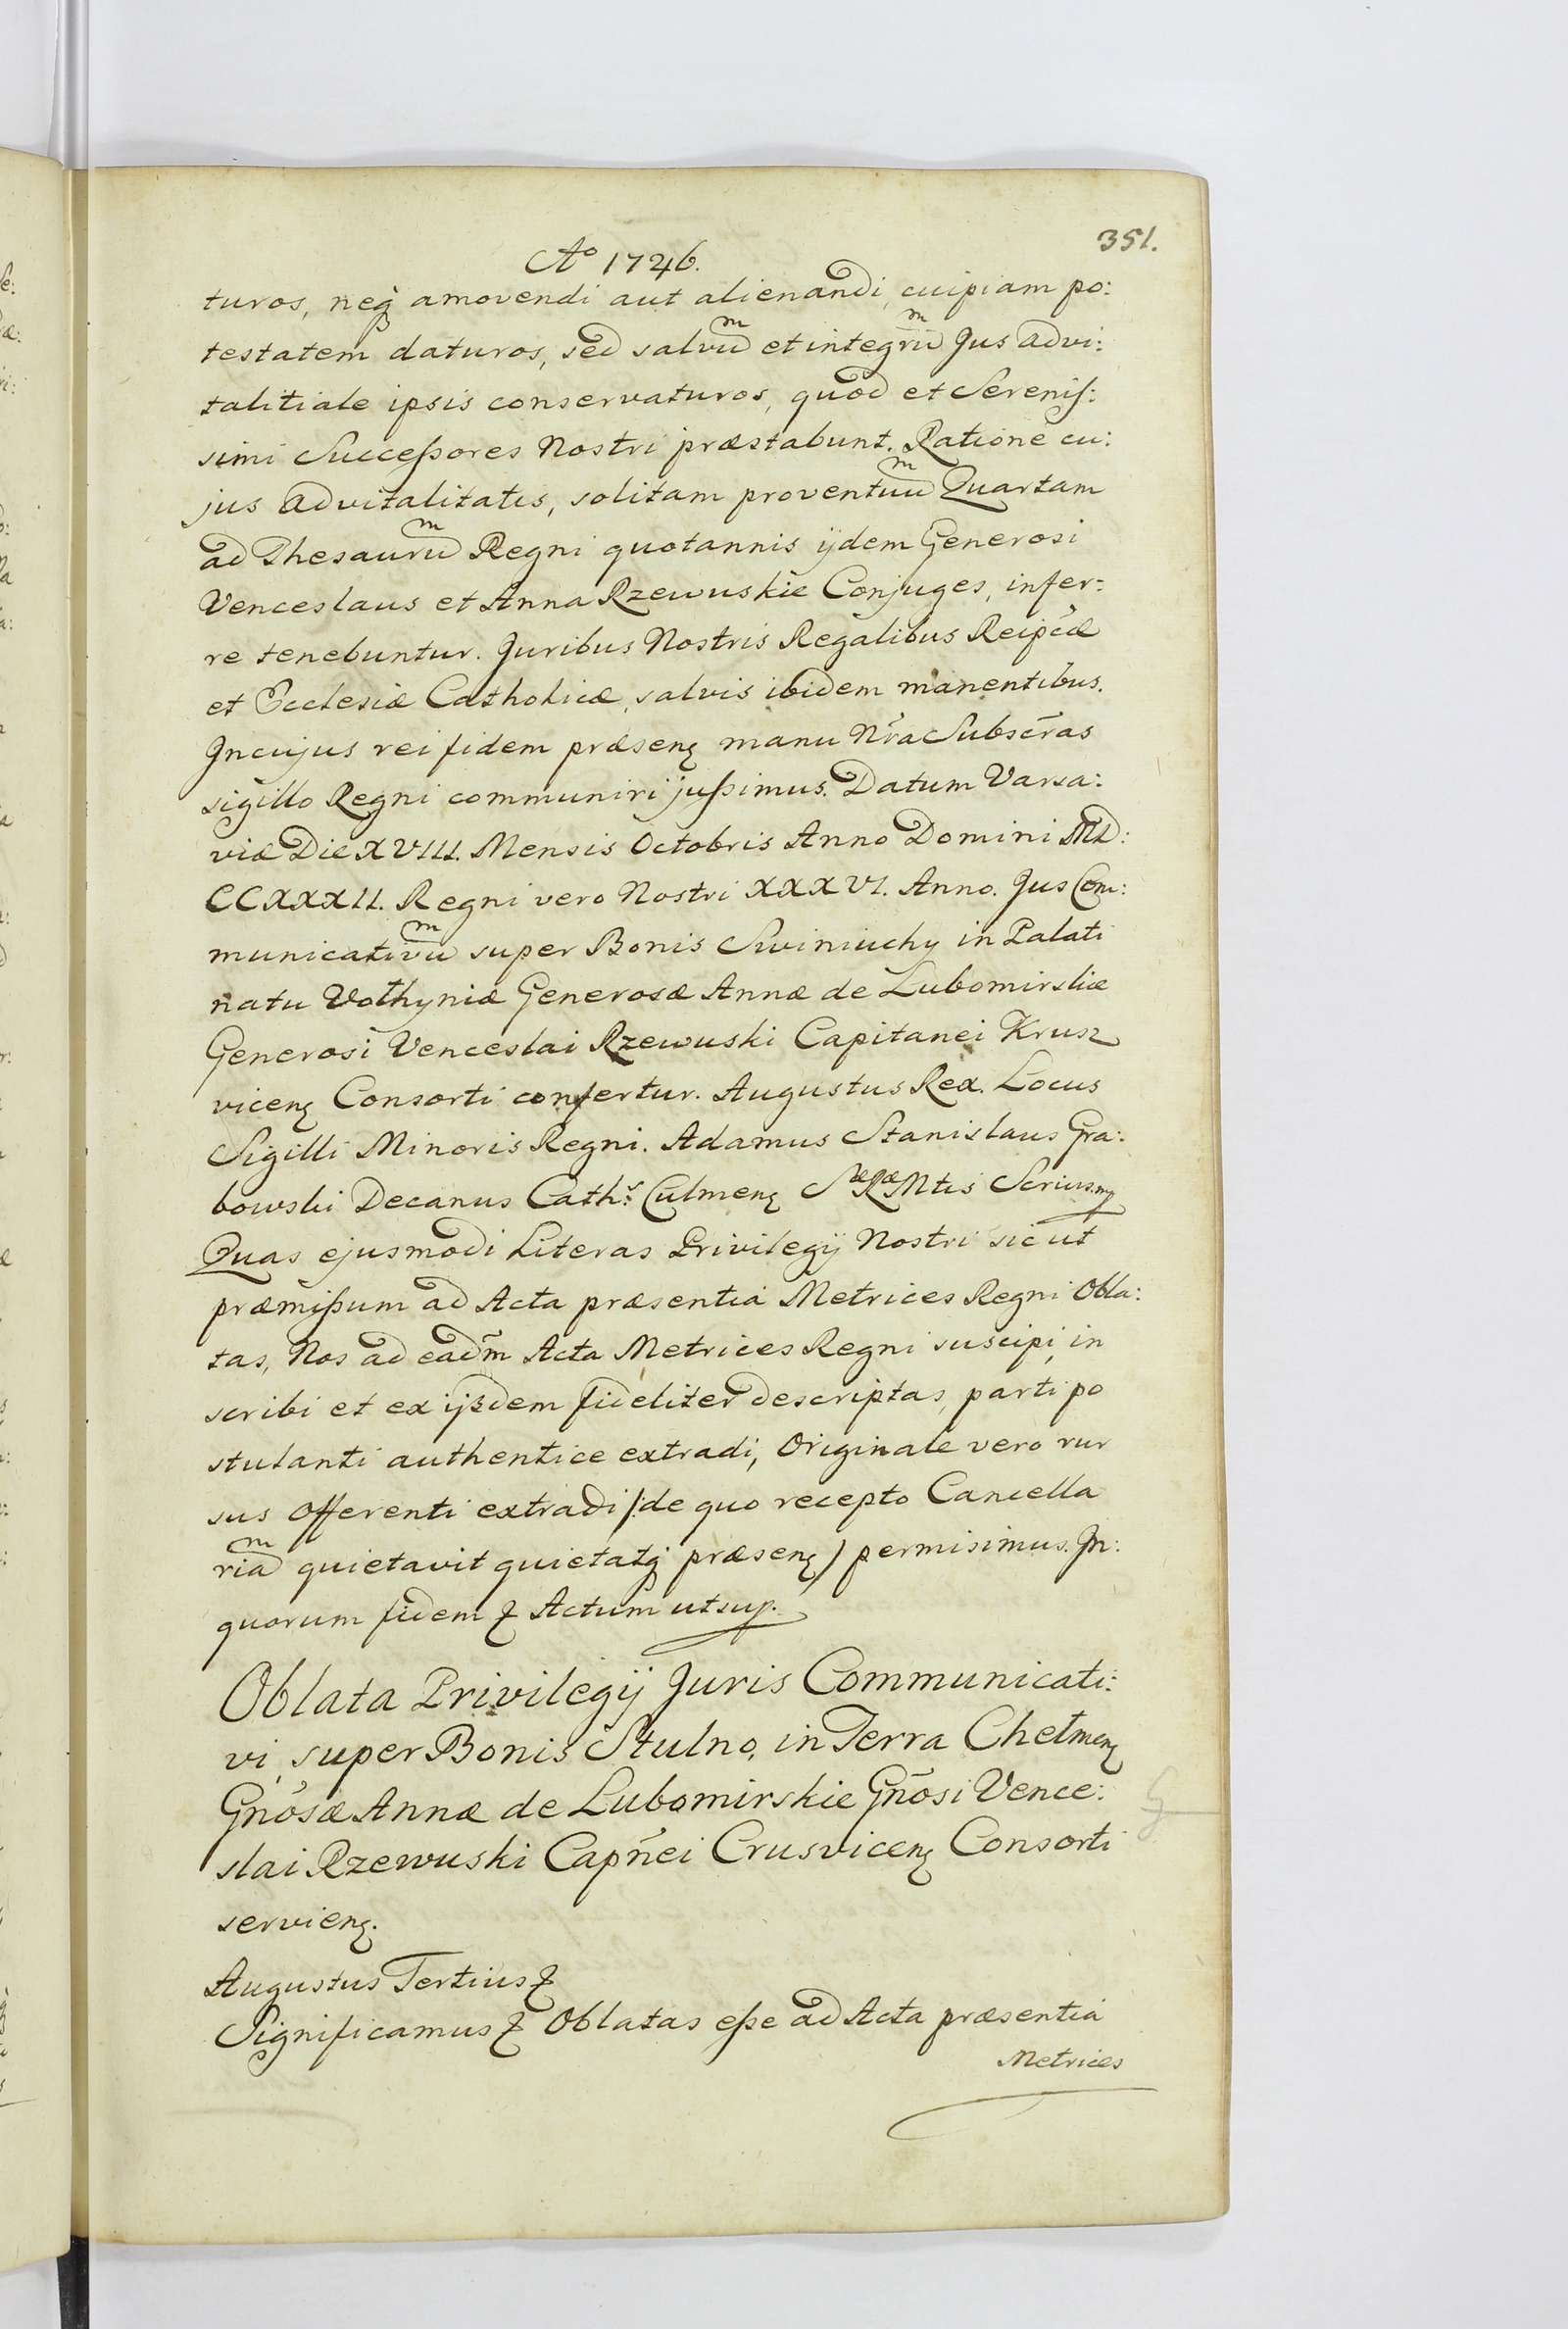 351.
Aº 1746.
turos, neq́ amovendi aut alienandi, cuipiam po:
testatem daturos, sed salvuᵐ et integruᵐ Jus advi:
talitiale ipsis conservaturos, quod et Sereniſ:
simi Succeßores Nostri præstabunt. Ratione cu:
jus advitalitatis, solitam proventuuᵐ Quartam
ad Thesauruᵐ Regni quotannis ijdem Generosi
Venceslaus et Anna Rzewuskie Conjuges, infer:
re tenebuntur. Juribus Nostris Regalibus Reipc̃æ
et Ecclesiæ Catholicæ, salvis ibidem manentibus.
Incujus rei fidem præsenȩ manu Nr̃a Subscr̃as
sigillo Regni communiri jußimus. Datum Varsa:
viæ Die XVIII. Mensis Octobris Anno Domini MD:
CCXXXII. Regni vero Nostri XXXVI. Anno. Jus Com:
municativuᵐ super Bonis Swiniuchy in Palati
natu Volhyniæ Generosæ Annæ de Lubomirskie
Generosi Venceslai Rzewuski Capitanei Krusz
vicenȩ Consorti confertur. Augustus Rex. Locus
Sigilli Minoris Regni. Adamus Stanislaus Gra:
bowski Decanus Cathʳ: Culmenȩ SæRæMtis Scrius.mp
Quas ejusmodi Literas Privilegij Nostri sicut
præmißum ad Acta præsentia Metrices Regni Obla:
tas, Nos ad eadm̃ Acta Metrices Regni suscipi, in
scribi et ex ijsdem fideliter descriptas, parti po
stulanti authentice extradi, Originale vero rur
sus offerenti extradi /:de quo recepto Cancella
riaᵐ quietavit quietatq́ præsenȩ) permisimus. In:
quorum fidem ⁊ Actum ut sup.
Oblata Privilegij Juris Communicati:
vi, super Bonis Stulno, in Terra Chelmenȩ
Gnõsæ Annæ de Lubomirskie Gnõsi Vence:
slai Rzewuski Capñei Crusvicenȩ Consorti
servienȩ.
Augustus Tertius ⁊
Significamus ⁊ Oblatas eße ad Acta præsentia
Metrices